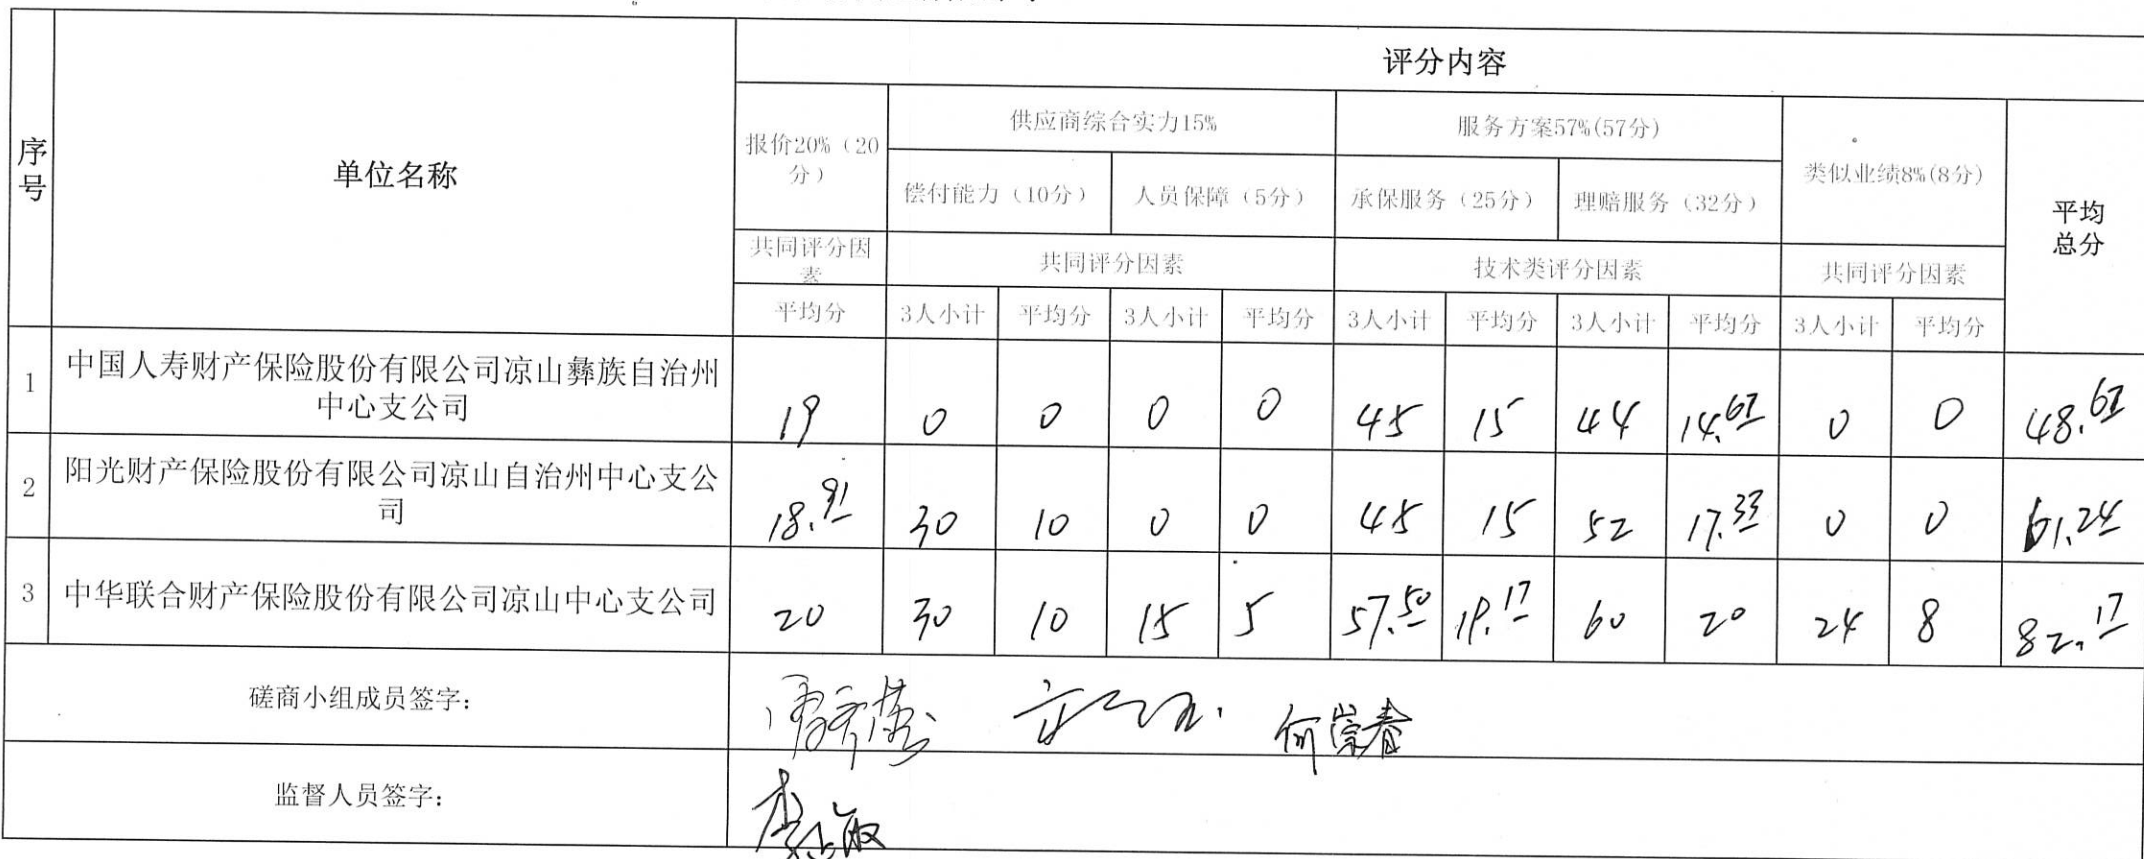 评分内容
序号
单位名称
报价20%（20分）
供应商综合实力15%
服务方案57%(57分)
类似业绩8%(8分)
平均总分
偿付能力（10分）
人员保障（5分）
承保服务（25分）
理赔服务（32分）
共同评分因素
共同评分因素
技术类评分因素
共同评分因素
平均分 3人小计 平均分 3人小计 平均分 3人小计 平均分 3人小计 平均分 3人小计 平均分
1 中国人寿财产保险股份有限公司凉山彝族自治州中心支公司 19 0 0 0 0 45 15 44 14.67 0 0 48.67
2 阳光财产保险股份有限公司凉山自治州中心支公司 18.91 30 10 0 0 45 15 52 17.33 0 0 61.24
3 中华联合财产保险股份有限公司凉山中心支公司 20 30 10 15 5 57.50 19.17 60 20 24 8 82.17
磋商小组成员签字：
何崇春
监督人员签字：